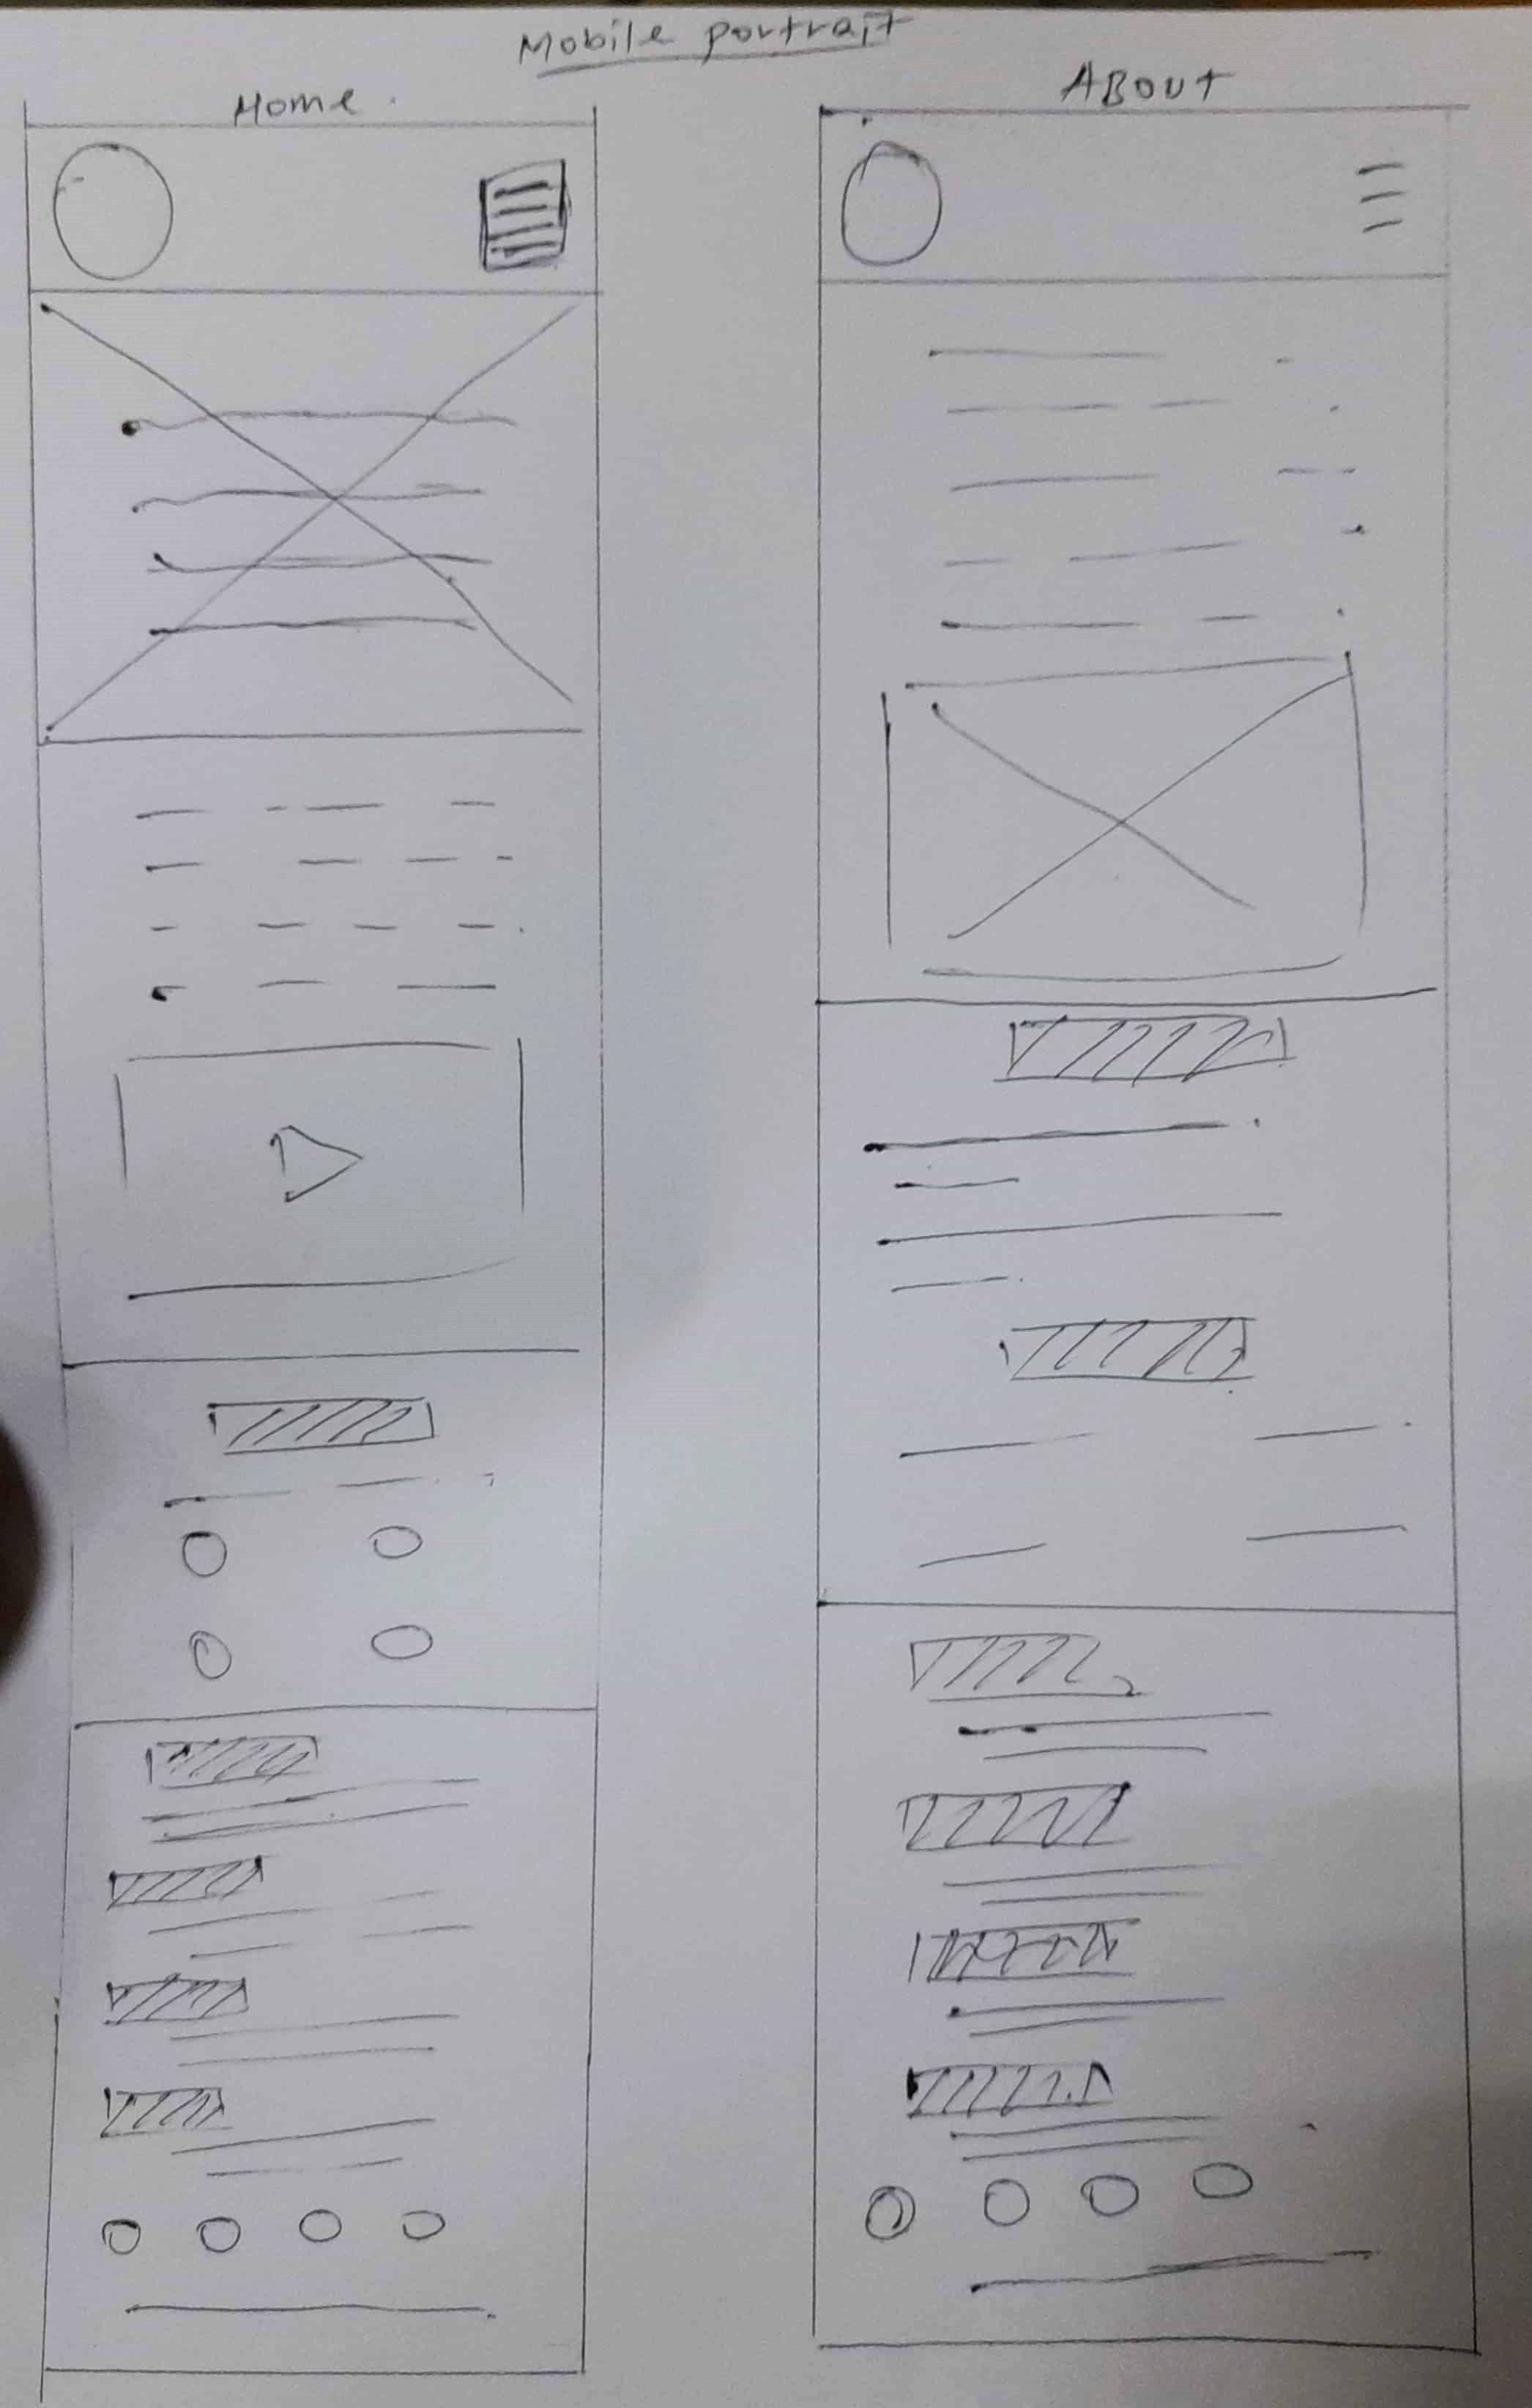 Mobile portrait
Home
ABOUT